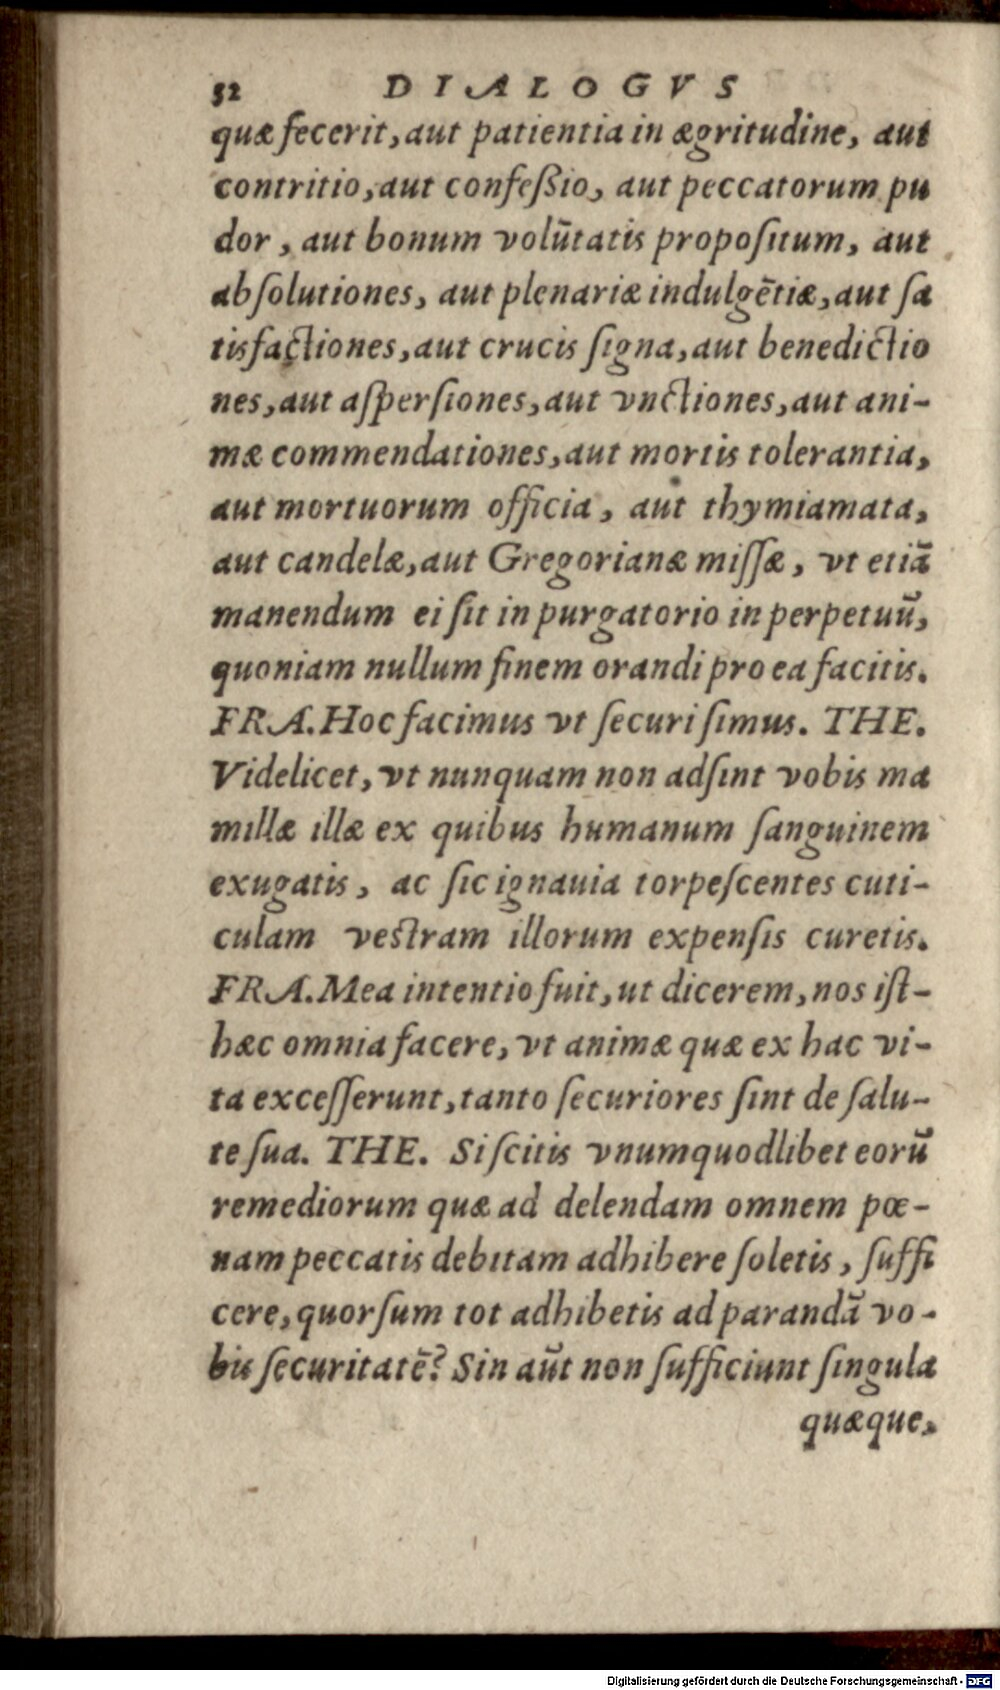 52 DIALOGVS
quæ fecerit, aut patientia in ægritudine, aut
contritio, aut confeßio, aut peccatorum pu
dor, aut bonum volũtatis propoſitum, aut
abſolutiones, aut plenariæ indulgẽtiæ, aut ſa
tisfactiones, aut crucis ſigna, aut benedictio
nes, aut aſperſiones, aut vnctiones, aut ani-
mæ commendationes, aut mortis tolerantia,
aut mortuorum officia, aut thymiamata,
aut candelæ, aut Gregorianæ miſſæ, vt etiã
manendum ei ſit in purgatorio in perpetuũ,
quoniam nullum finem orandi pro ea facitis.
FRA. Hoc facimus vt ſecuri ſimus. THE.
Videlicet, vt nunquam non adſint vobis ma
millæ illæ ex quibus humanum ſanguinem
exugatis, ac ſic ignauia torpeſcentes cuti-
culam veſtram illorum expenſis curetis.
FRA. Mea intentio fuit, ut dicerem, nos iſt-
hæc omnia facere, vt animæ quæ ex hac vi-
ta exceſſerunt, tanto ſecuriores ſint de ſalu-
te ſua. THE. Si ſcitis vnumquodlibet eorũ
remediorum quæ ad delendam omnem pœ-
nam peccatis debitam adhibere ſoletis, ſuffi
cere, quorſum tot adhibetis ad parandã vo-
bis ſecuritatẽ? Sin aũt non ſufficiunt ſingula
quæque,
Digitalisierung gefördert durch die Deutsche Forschungsgemeinschaft - DFG